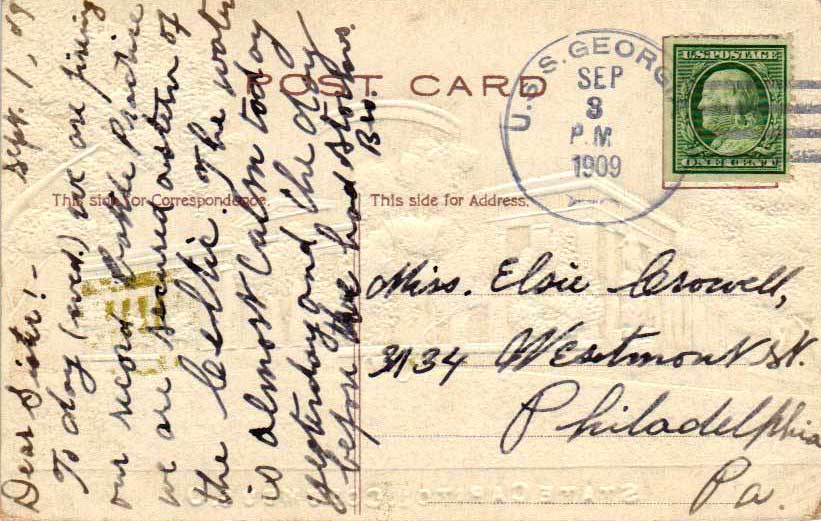 POST CARD
U.S.S. GEORGI
SEP
3
P.M
1909
U.S. POSTAGE
ONE CENT
This side for Correspondence.
This side for Address.
Sept. 1, 09
Dear Sister! -
To day (wed.) we are firing
our record battle Practice
we are secured astern of
the Celtic. The water
is almost calm today
yesterday and the day
before we had storms.
Bro.
Miss. Elsie Crowell,
3134 Westmont St.
Philadelphia
Pa.